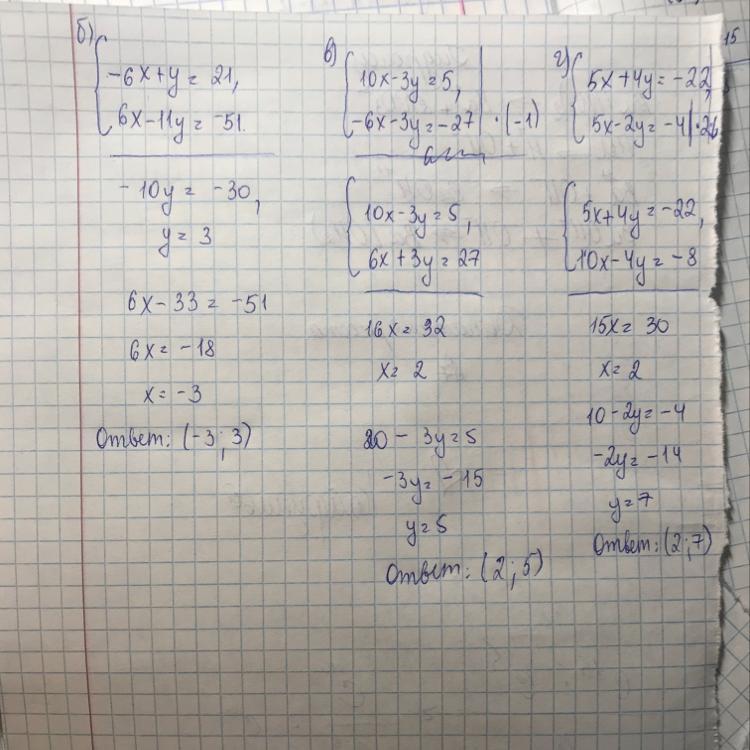 б)
-6x+y = 21,
6x-11y = -51.
-10y = -30,
y = 3
6x-33 = -51
6x = -18
x = -3
Ответ: (-3; 3)
в)
10x-3y = 5,
-6x-3y = -27 | · (-1)
10x-3y = 5,
6x+3y = 27
16x = 32
x = 2
20 - 3y = 5
-3y = -15
y = 5
Ответ: (2; 5)
г)
5x+4y = -22,
5x-2y = -4 | · 2
5x+4y = -22,
10x-4y = -8
15x = 30
x = 2
10-2y = -4
-2y = -14
y = 7
Ответ: (2; 7)
15